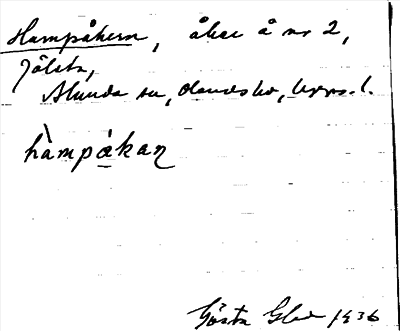 Hampåkern, åker å nr 2,
Jölsta,
Alunda sn, Olands hd, Upps. l.
hàmpåkaɳ
Gösta Glad 1936